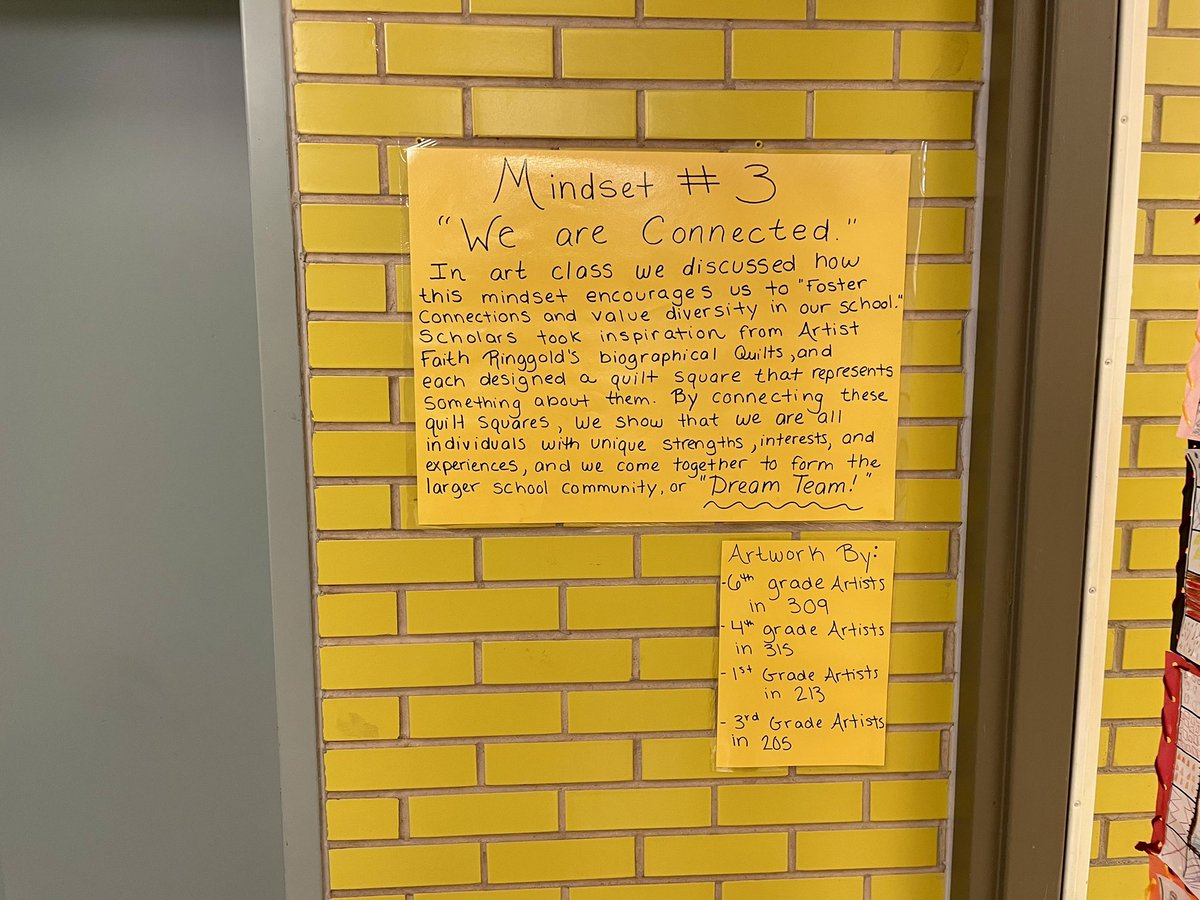 Mindset # 3
"We are Connected."
In art class we discussed how
this mindset encourages us to "Foster
Connections and value diversity in our school."
Scholars took inspiration from Artist
Faith Ringgold's biographical Quilts, and
each designed a quilt square that represents
something about them. By connecting these
quilt squares, we show that we are all
individuals with unique strengths, interests, and
experiences, and we come together to form the
larger school community, or "Dream Team!"
Artwork By:
-6th grade Artists
in 309
- 4th grade Artists
in 315
- 1st Grade Artists
in 213
- 3rd Grade Artists
in 205